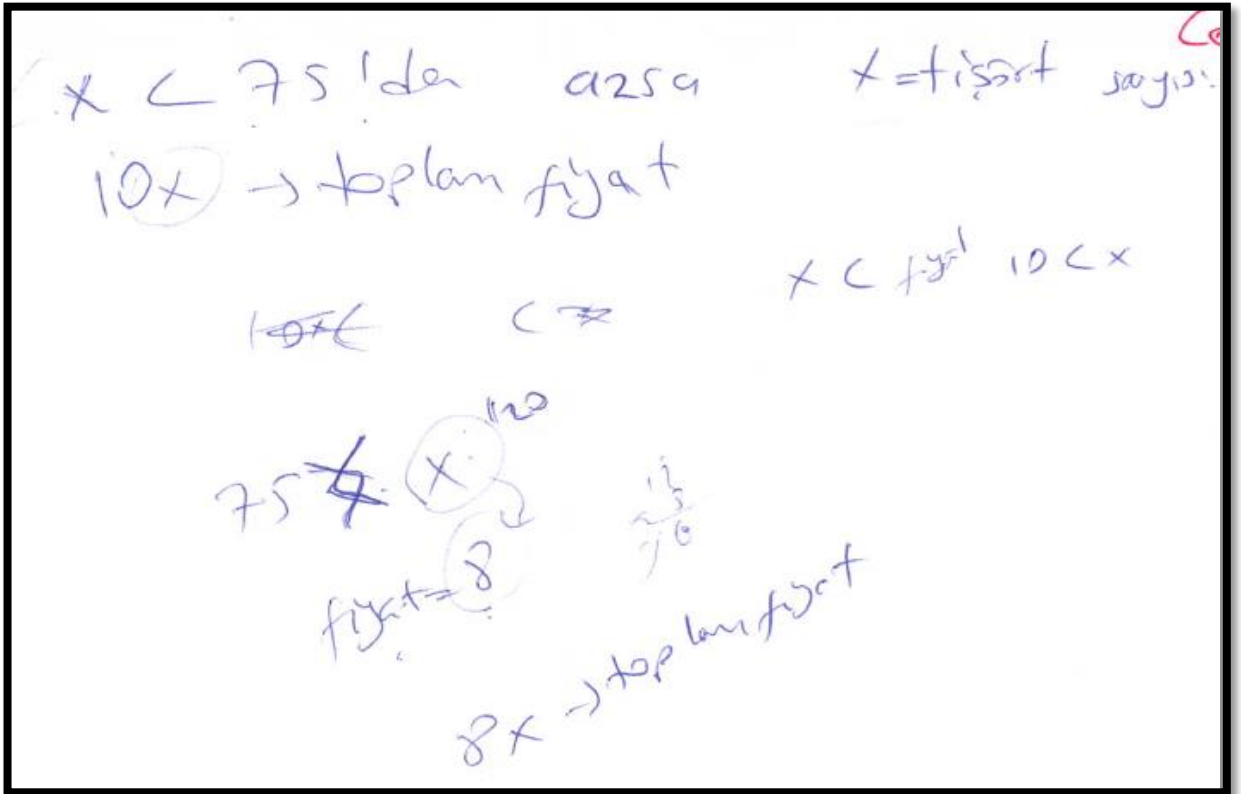 x < 75'den azsa x = tişört sayısı
10x → toplam fiyat
x < fiyat 10 < x
75 x 120
fiyat = 8
8x → toplam fiyat